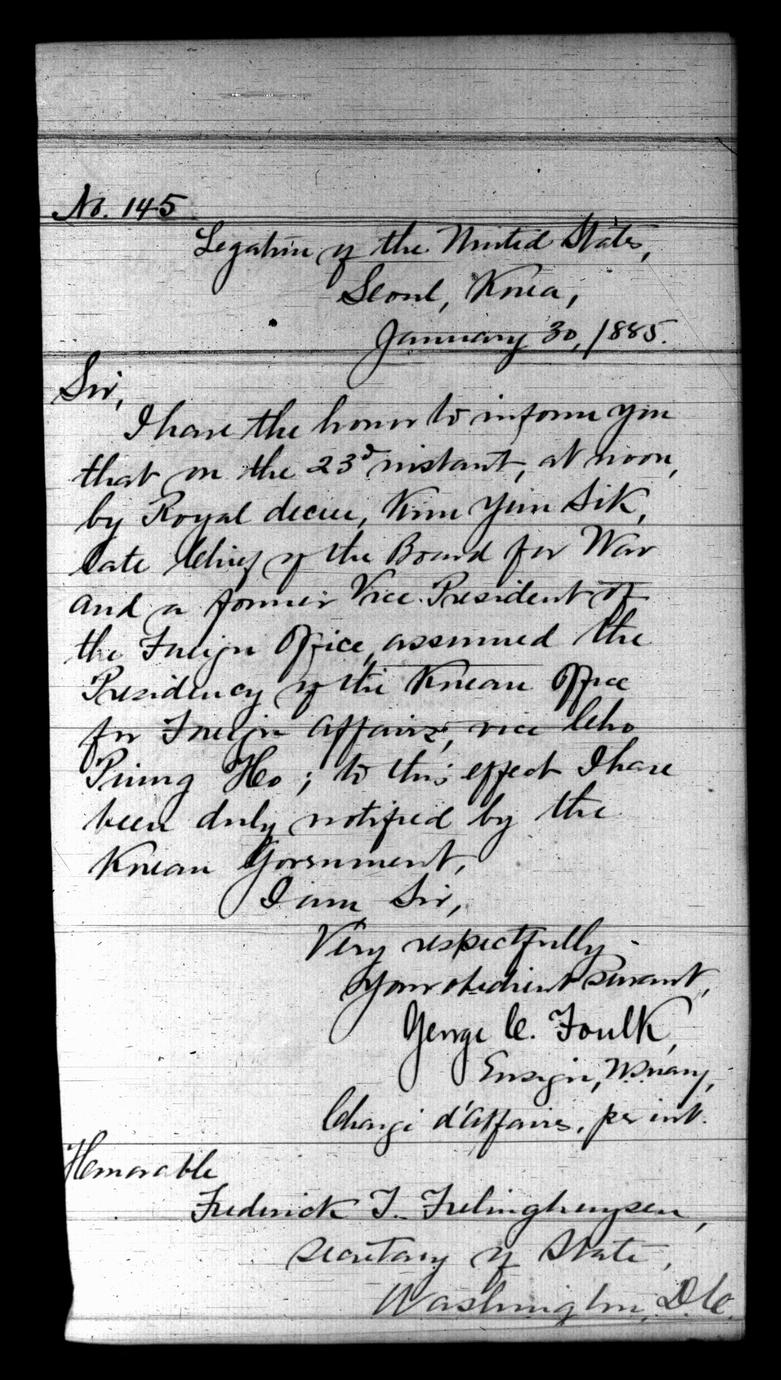 No. 145
Legation of the United States,
Seoul, Korea,
January 30, 1885.
Sir,
I have the honor to inform you
that on the 23d instant, at noon,
by Royal decree, Kim Yun Sik,
late Chief of the Board for War
and a former Vice President of
the Foreign Office, assumed the
Presidency of the Korean Office
for Foreign Affairs, vice Cho
Piung Ho; to this effect I have
been duly notified by the
Korean Government.
I am Sir,
Very respectfully
Your obedient servant,
George C. Foulk,
Ensign, U.S. Navy,
Chargé d'Affaires, per int.
Honorable
Frederick T. Frelinghuysen,
Secretary of State,
Washington, D.C.